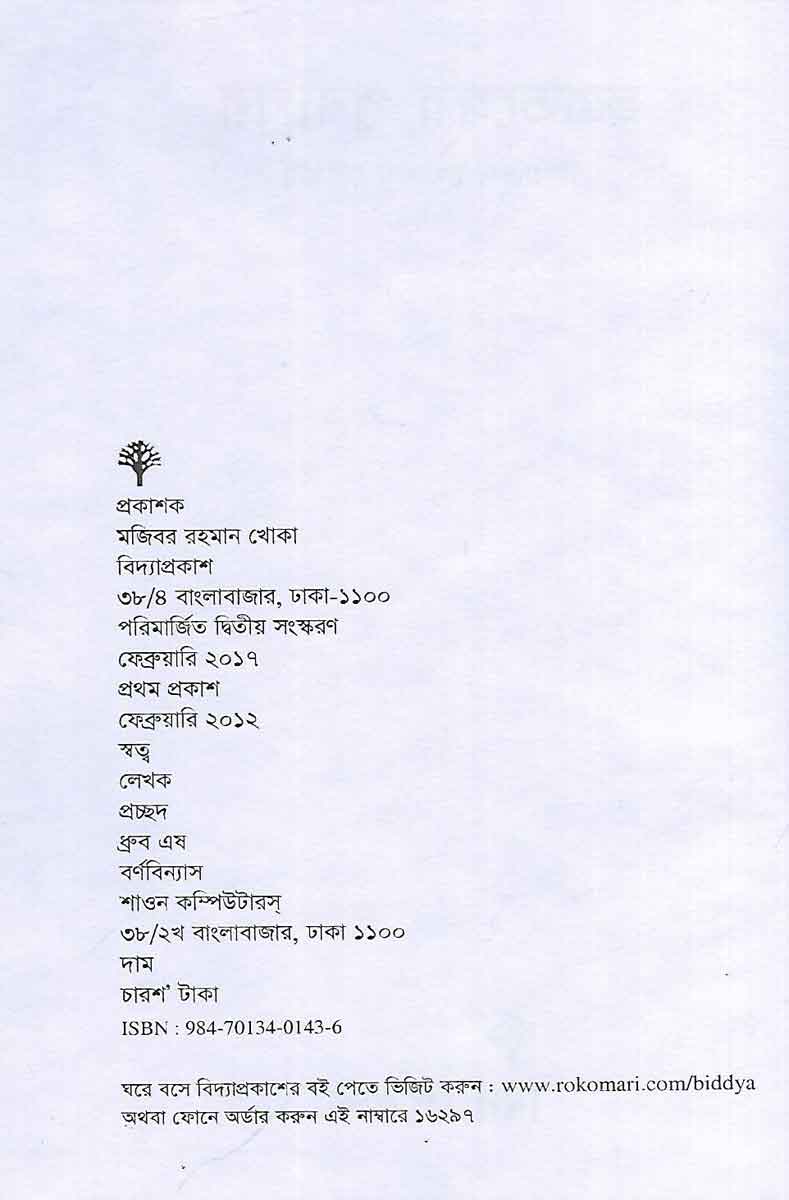 প্রকাশক
মজিবর রহমান খোকা
বিদ্যাপ্রকাশ
৩৮/৪ বাংলাবাজার, ঢাকা-১১০০
পরিমার্জিত দ্বিতীয় সংস্করণ
ফেব্রুয়ারি ২০১৭
প্রথম প্রকাশ
ফেব্রুয়ারি ২০১২
স্বত্ব
লেখক
প্রচ্ছদ
ধ্রুব এষ
বর্ণবিন্যাস
শাওন কম্পিউটারস্
৩৮/২খ বাংলাবাজার, ঢাকা ১১০০
দাম
চারশ’ টাকা
ISBN : 984-70134-0143-6
ঘরে বসে বিদ্যাপ্রকাশের বই পেতে ভিজিট করুন : www.rokomari.com/biddya
অথবা ফোনে অর্ডার করুন এই নাম্বারে ১৬২৯৭